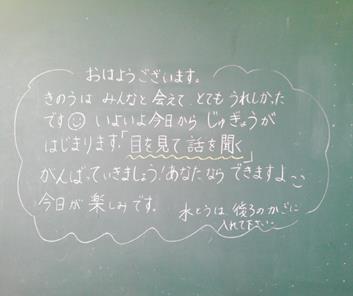 おはようございます。
きのうは みんなと会えて とてもうれしかった
です いよいよ今日から じゅぎょうが
はじまります。「目を見て話を聞く」
がんばっていきましょう!あなたなら できますよ
今日が 楽しみです。
水とうは 後ろのかごに
入れて下さい